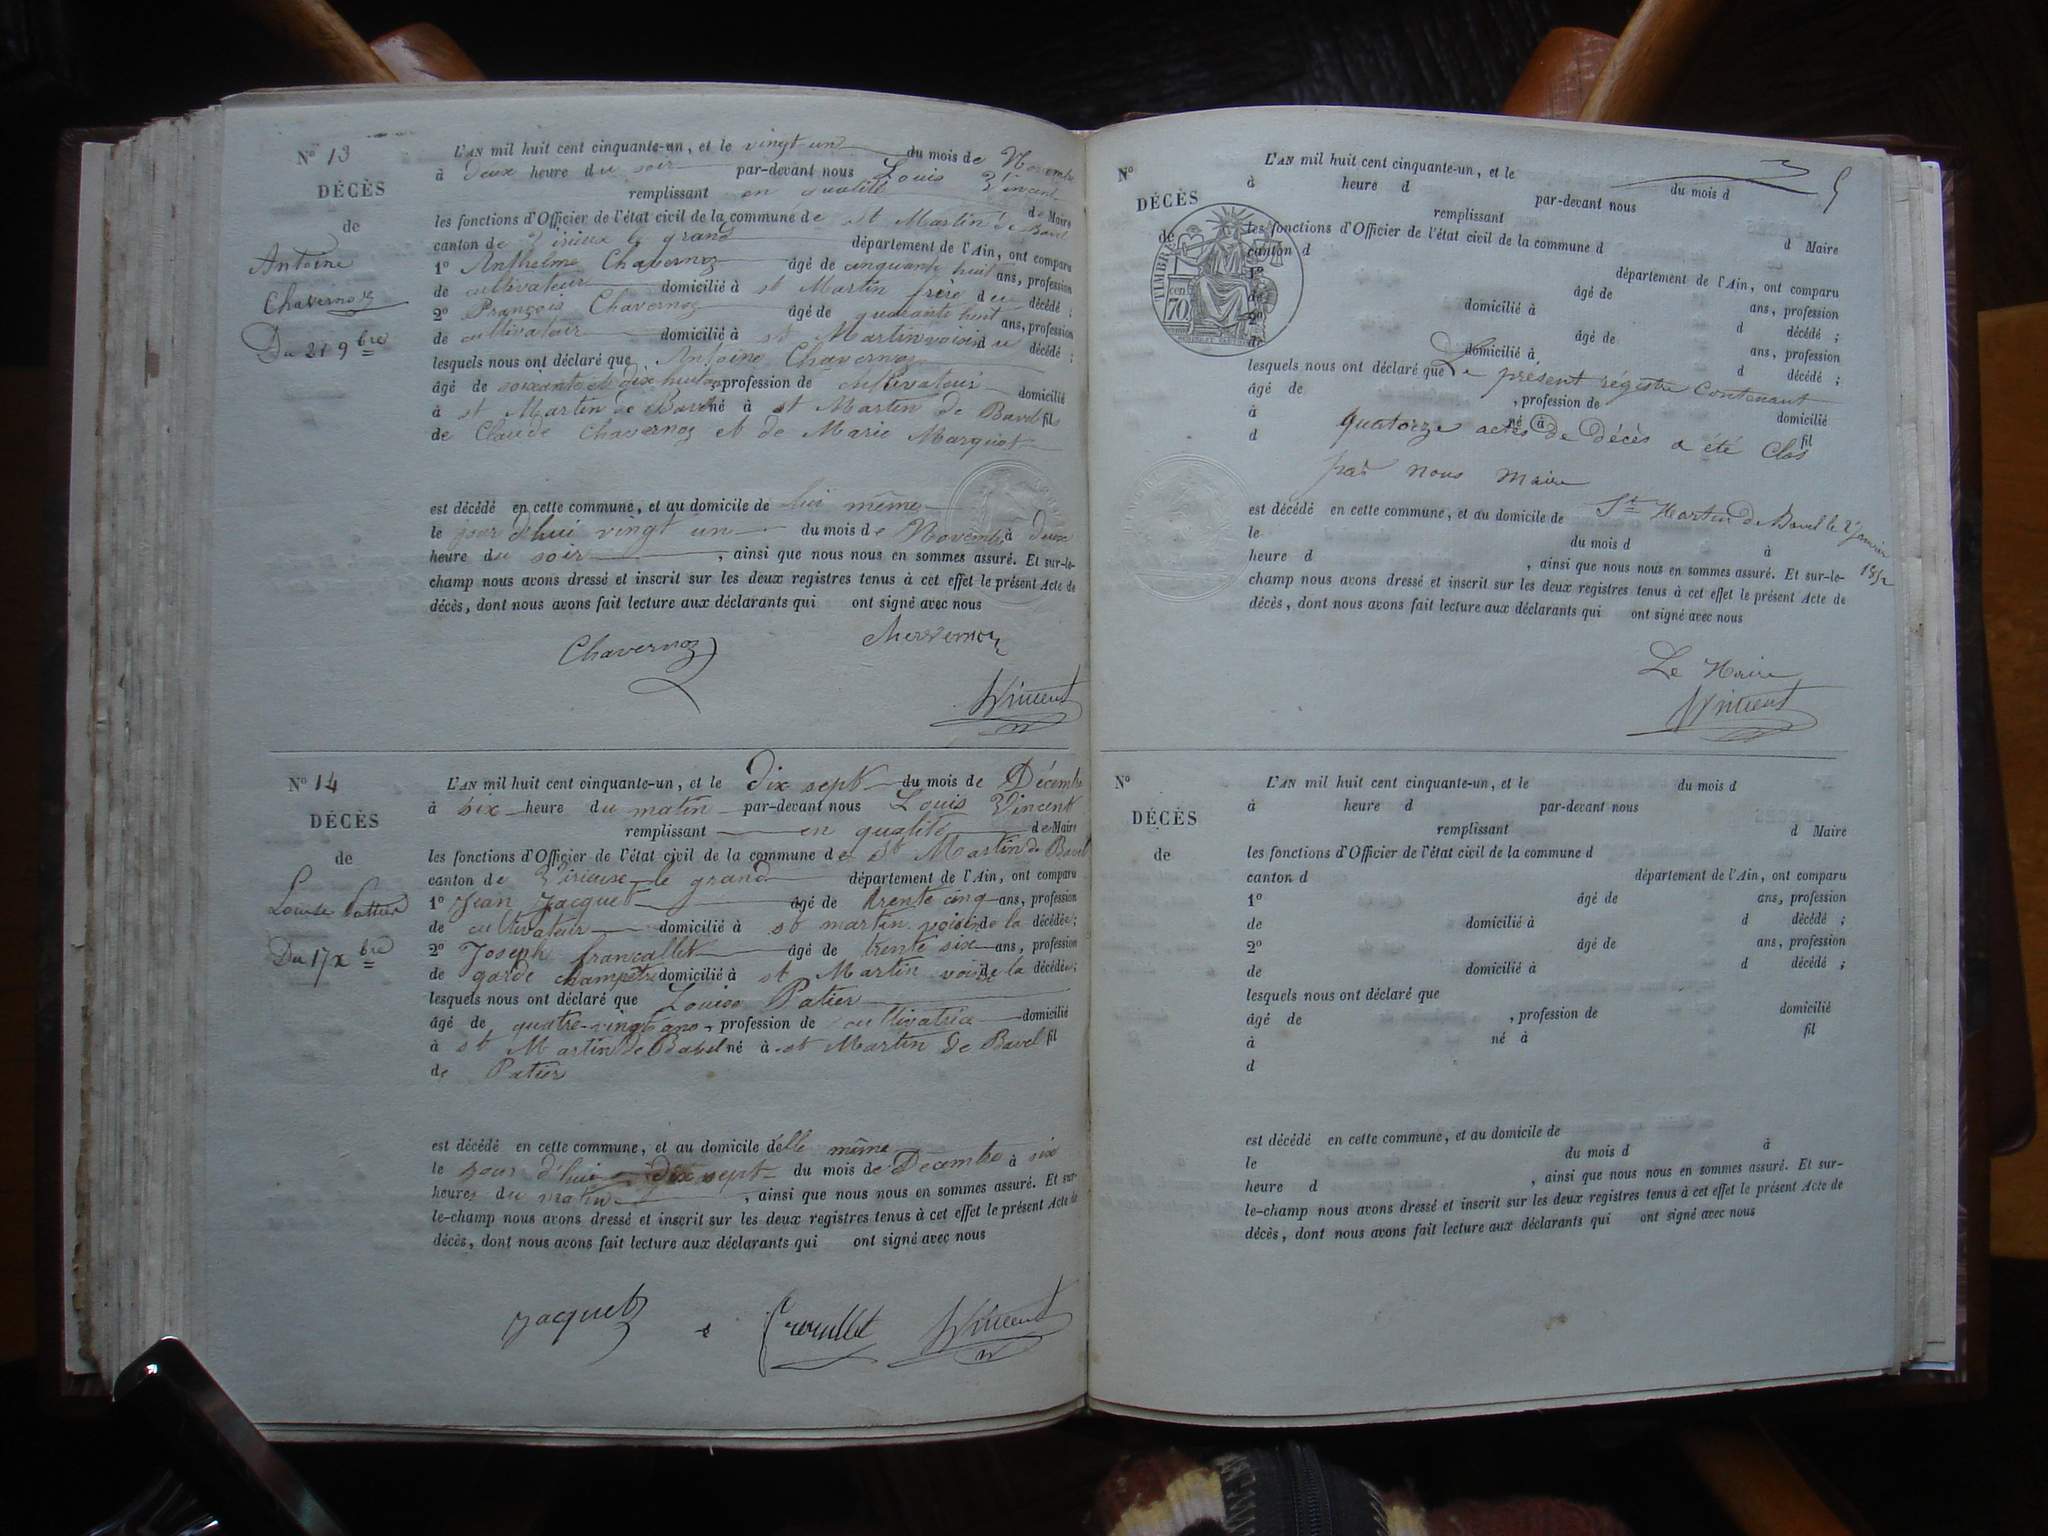 N° 13
DÉCÈS
de
Antoine
Chavernoz
Du 21 9bre
L'AN mil huit cent cinquante-un, et le vingt un du mois de Novembre
à deux heure du soir par-devant nous Louis Vincent
remplissant en qualité de Maire
les fonctions d'Officier de l'état civil de la commune de st Martin de Bavel
canton de Virieux le grand département de l'Ain, ont comparu
1° Anthelme Chavernoz âgé de cinquante huit ans, profession
de cultivateur domicilié à st Martin frère du décédé ;
2° François Chavernoz âgé de quarante huit ans, profession
de cultivateur domicilié à st Martin voisin du décédé ;
lesquels nous ont déclaré que Antoine Chavernoz
âgé de soixante et dix huit ans, profession de cultivateur domicilié
à st Martin de Bavel né à st Martin de Bavel fils
de Claude Chavernoz et de Marie Marquot
est décédé en cette commune, et au domicile de lui même
le jour d'hui vingt un du mois de Novembre à deux
heure du soir , ainsi que nous nous en sommes assuré. Et sur-le-
champ nous avons dressé et inscrit sur les deux registres tenus à cet effet le présent Acte de
décès, dont nous avons fait lecture aux déclarants qui ont signé avec nous
Chavernoz
Vincent
N° 14
DÉCÈS
de
Louise Pattier
Du 17 xbre
L'AN mil huit cent cinquante-un, et le dix sept du mois de Décembre
à six heure du matin par-devant nous Louis Vincent
remplissant en qualité de Maire
les fonctions d'Officier de l'état civil de la commune de st Martin de Bavel
canton de Virieux-le grand département de l'Ain, ont comparu
1° Jean Jacquet âgé de trente cinq ans, profession
de cultivateur domicilié à st martin voisin de la décédée ;
2° Joseph francallet âgé de trente six ans, profession
de garde champêtre domicilié à st Martin voisin de la décédée ;
lesquels nous ont déclaré que Louise Patier
âgé de quatre-vingt ans, profession de cultivatrice domicilié
à st Martin de Bavel né à st Martin de Bavel fil
de Patier
est décédé en cette commune, et au domicile delle même
le jour d'hui dix sept du mois de Décembre à six
heures du matin , ainsi que nous nous en sommes assuré. Et sur-
le-champ nous avons dressé et inscrit sur les deux registres tenus à cet effet le présent Acte de
décès, dont nous avons fait lecture aux déclarants qui ont signé avec nous
Jacquet
Vincent
N°
DÉCÈS
de
TIMBRE
70 cen
L'AN mil huit cent cinquante-un, et le du mois d
à heure d par-devant nous
remplissant d Maire
les fonctions d'Officier de l'état civil de la commune d
canton d département de l'Ain, ont comparu
1° âgé de ans, profession
de domicilié à d décédé ;
2° âgé de ans, profession
de domicilié à d décédé ;
lesquels nous ont déclaré que Le présent régistre contenant
âgé de , profession de domicilié
à né à fil
d quatorze actes de décès a été clos
par nous maire
est décédé en cette commune, et au domicile de St Martin de Bavel le 2 Janvier
1852
le du mois d à
heure d , ainsi que nous nous en sommes assuré. Et sur-le-
champ nous avons dressé et inscrit sur les deux registres tenus à cet effet le présent Acte de
décès, dont nous avons fait lecture aux déclarants qui ont signé avec nous
Le Maire
Vincent
N°
DÉCÈS
de
L'AN mil huit cent cinquante-un, et le du mois d
à heure d par-devant nous
remplissant d Maire
les fonctions d'Officier de l'état civil de la commune d
canton d département de l'Ain, ont comparu
1° âgé de ans, profession
de domicilié à d décédé ;
2° âgé de ans, profession
de domicilié à d décédé ;
lesquels nous ont déclaré que
âgé de , profession de domicilié
à né à fil
d
est décédé en cette commune, et au domicile de
le du mois d à
heure d , ainsi que nous nous en sommes assuré. Et sur-
le-champ nous avons dressé et inscrit sur les deux registres tenus à cet effet le présent Acte de
décès, dont nous avons fait lecture aux déclarants qui ont signé avec nous